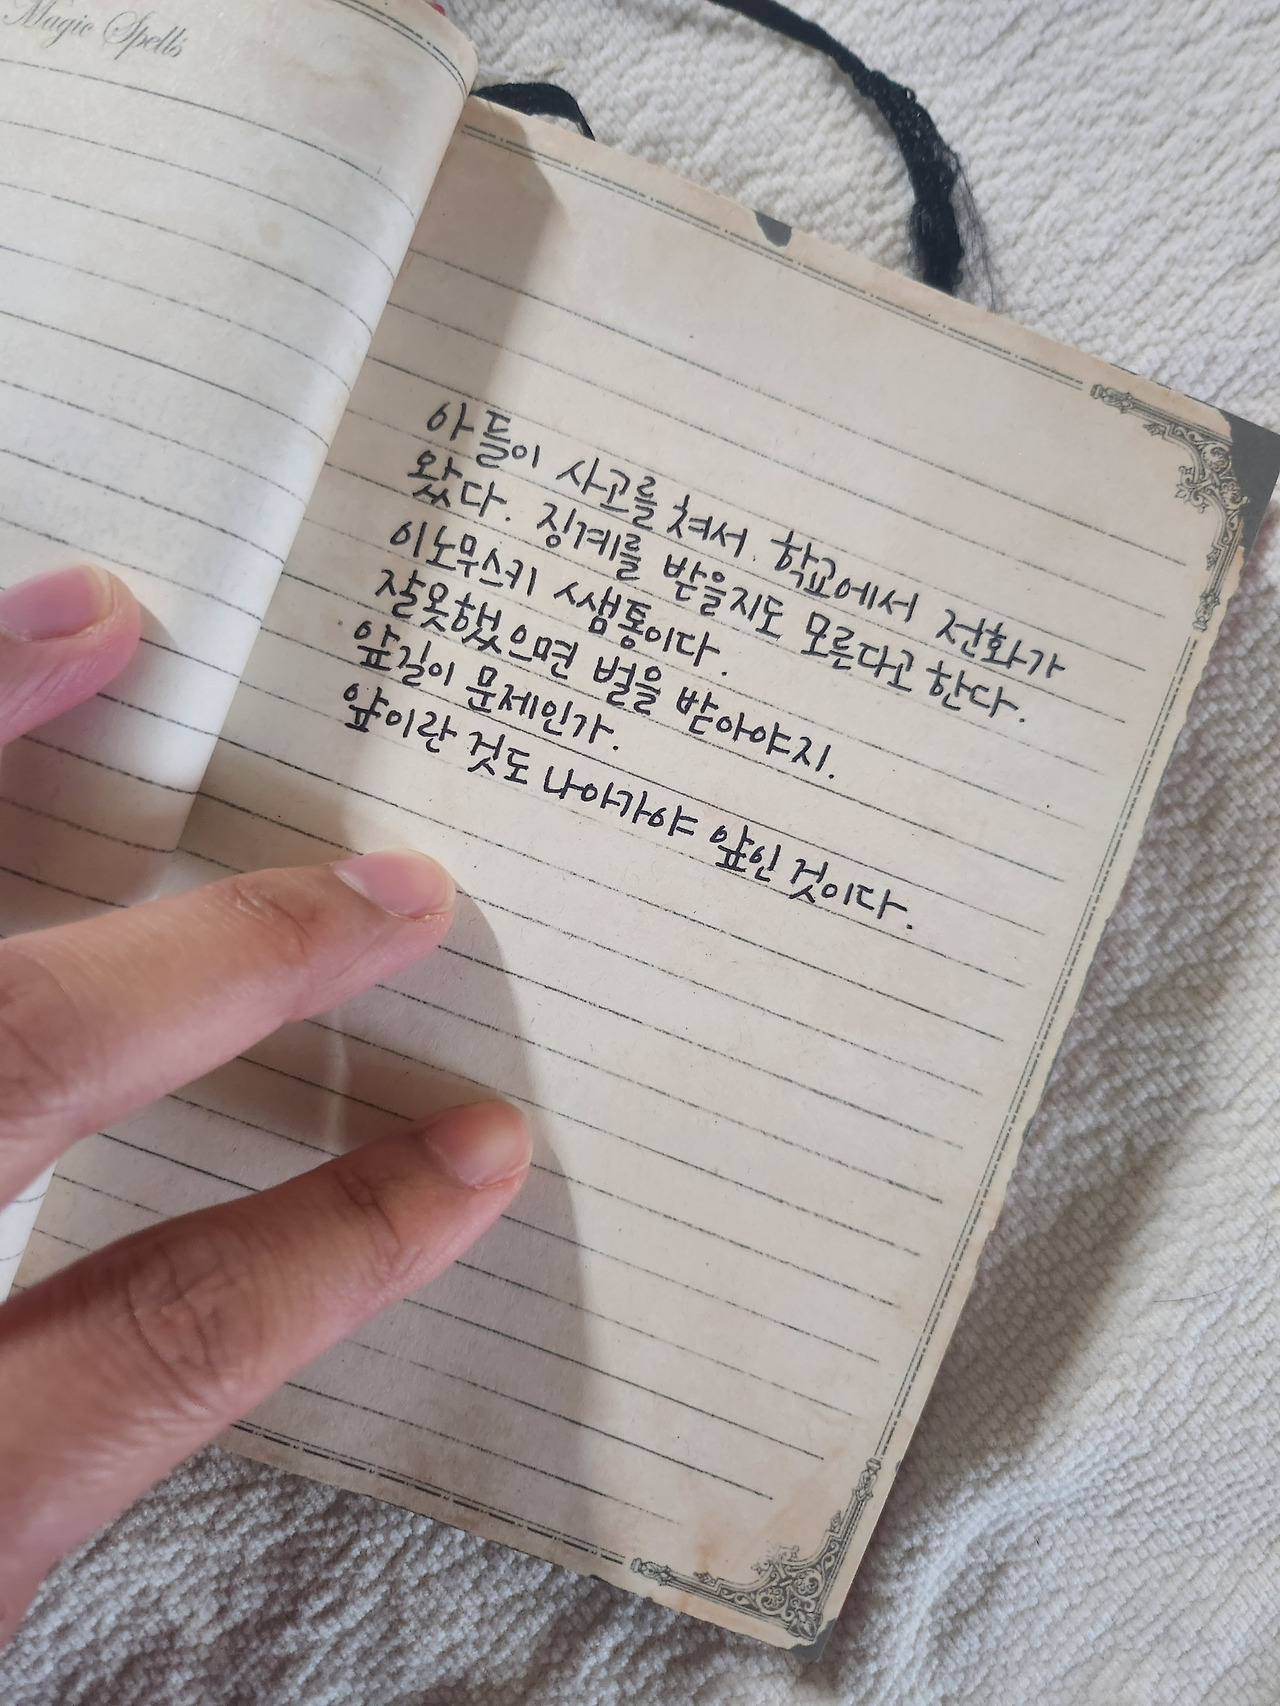 Magic Spells
아들이 사고를 쳐서 학교에서 전화가
왔다. 징계를 받을지도 모른다고 한다.
이노무스키 쌤통이다.
잘못했으면 벌을 받아야지.
앞길이 문제인가.
앞이란 것도 나아가야 앞인 것이다.